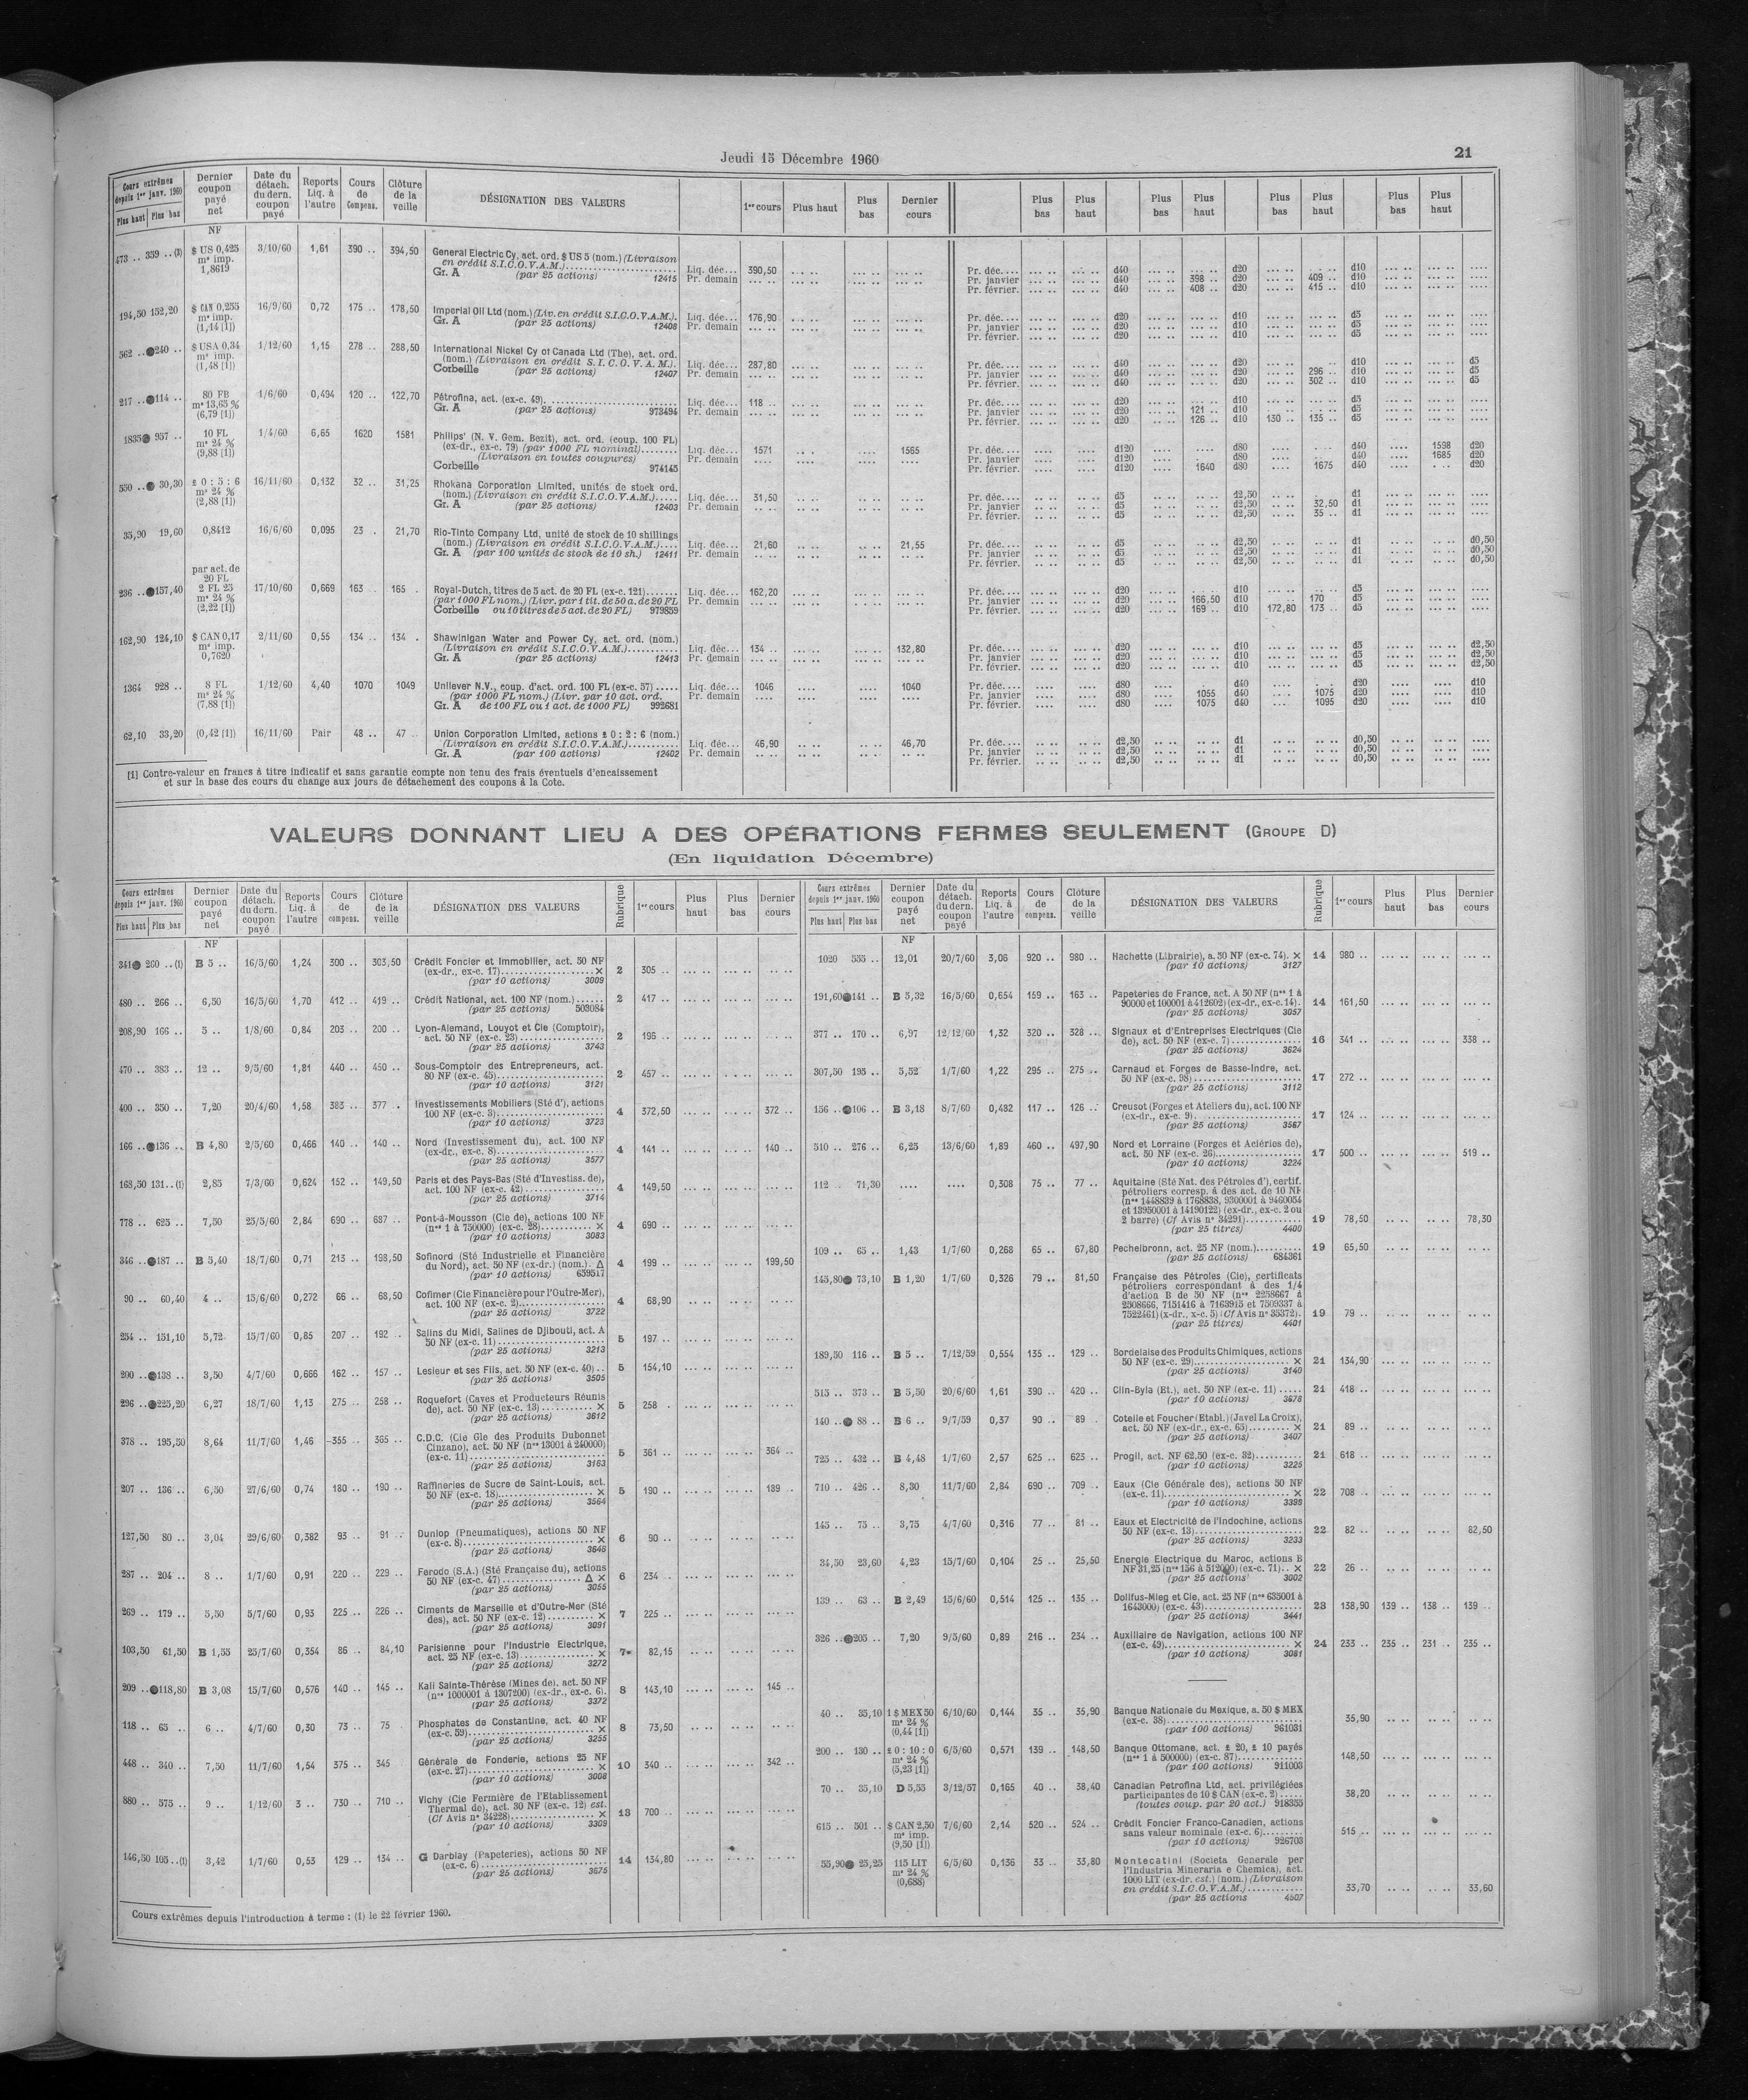 Jeudi 15 Décembre 1960
21
Cours extrêmes depuis 1er janv. 1960 Plus haut Plus bas | Dernier coupon payé net | Date du détach. du dern. coupon payé | Reports Liq. à l'autre | Cours de Compens. | Clôture de la veille | DÉSIGNATION DES VALEURS | 1er cours | Plus haut | Plus bas | Dernier cours | Plus bas | Plus haut | Plus bas | Plus haut | Plus bas | Plus haut | Plus bas | Plus haut
NF
473 .. 359 ..(1) $ US 0,425 3/10/60 1,61 390 .. 394,50 General Electric Cy, act. ord. $ US 5 (nom.) (Livraison
ms imp. en crédit S.I.C.O.V.A.M.) Liq. déc... 390,50 Pr. déc.... d40 d20 d10
1,8619 Gr. A (par 25 actions) 12415 Pr. demain Pr. janvier d40 398 .. d20 409 .. d10
Pr. février. d40 408 .. d20 415 .. d10
194,50 152,20 $ CAN 0,255 16/9/60 0,72 175 .. 178,50 Imperial Oil Ltd (nom.) (Liv. en crédit S.I.C.O.V.A.M.). Liq. déc... 176,90 Pr. déc.... d20 d10 d5
ms imp. Gr. A (par 25 actions) 12408 Pr. demain Pr. janvier d20 d10 d5
(1,14 [1]) Pr. février. d20 d10 d5
362 .. 240 .. $ USA 0,34 1/12/60 1,15 278 .. 288,50 International Nickel Cy of Canada Ltd (The), act. ord.
ms imp. (nom.) (Livraison en crédit S.I.C.O.V.A.M.). Liq. déc... 287,80 Pr. déc.... d40 d20 d10 d5
(1,48 [1]) Corbeille (par 25 actions) 12407 Pr. demain Pr. janvier d40 d20 296 .. d10 d5
Pr. février. d40 d20 302 .. d10 d5
217 .. 114 .. 80 FB 1/6/60 0,494 120 .. 122,70 Pétrofina, act. (ex-c. 49). Liq. déc... 118 .. Pr. déc.... d20 d10 d5
ms 13,65 % Gr. A (par 25 actions) 973494 Pr. demain Pr. janvier d20 121 .. d10 d5
(6,79 [1]) Pr. février. d20 126 .. d10 130 .. 135 .. d5
1835 957 .. 10 FL 1/4/60 6,65 1620 1581 Philips' (N. V. Gem. Bezit), act. ord. (coup. 100 FL)
ms 24 % (ex-dr., ex-c. 79) (par 1000 FL nominal) Liq. déc... 1571 1565 Pr. déc.... d120 d80 d40 1598 d20
(9,88 [1]) (Livraison en toutes coupures) Pr. demain Pr. janvier d120 d80 d40 1685 d20
Corbeille 974145 Pr. février. d120 1640 d80 1675 d40 d20
550 .. 30,30 £ 0 : 5 : 6 16/11/60 0,132 32 .. 31,25 Rhokana Corporation Limited, unités de stock ord.
ms 24 % (nom.) (Livraison en crédit S.I.C.O.V.A.M.) Liq. déc... 31,50 Pr. déc.... d5 d2,50 d1
(2,88 [1]) Gr. A (par 25 actions) 12403 Pr. demain Pr. janvier d5 d2,50 32,50 d1
Pr. février. d5 d2,50 35 .. d1
35,90 19,60 0,8412 16/6/60 0,095 23 . 21,70 Rio-Tinto Company Ltd, unité de stock de 10 shillings
(nom.) (Livraison en crédit S.I.C.O.V.A.M.) Liq. déc... 21,60 21,55 Pr. déc.... d5 d2,50 d1 d0,50
Gr. A (par 100 unités de stock de 10 sh.) 12411 Pr. demain Pr. janvier d5 d2,50 d1 d0,50
Pr. février. d5 d2,50 d1 d0,50
par act. de
20 FL
236 .. 157,40 2 FL 25 17/10/60 0,669 163 . 165 . Royal-Dutch, titres de 5 act. de 20 FL (ex-c. 121) Liq. déc... 162,20 Pr. déc.... d20 d10 d5
ms 24 % (par 1000 FL nom.) (Livr. par 1 tit. de 50 a. de 20 FL Pr. demain Pr. janvier d20 166,50 d10 170 d5
(2,22 [1]) Corbeille ou 10 titres de 5 act. de 20 FL) 979859 Pr. février. d20 169 .. d10 172,80 173 .. d5
162,90 124,10 $ CAN 0,17 2/11/60 0,55 134 .. 134 . Shawinigan Water and Power Cy, act. ord. (nom.)
ms imp. (Livraison en crédit S.I.C.O.V.A.M.) Liq. déc... 134 .. 132,80 Pr. déc.... d20 d10 d5 d2,50
0,7620 Gr. A (par 25 actions) 12413 Pr. demain Pr. janvier d20 d10 d5 d2,50
Pr. février. d20 d10 d5 d2,50
1364 928 .. 8 FL 1/12/60 4,40 1070 1049 Unilever N.V., coup. d'act. ord. 100 FL (ex-c. 57) Liq. déc... 1046 1040 Pr. déc.... d80 d40 d20 d10
ms 24 % (par 1000 FL nom.) (Livr. par 10 act. ord. Pr. demain Pr. janvier d80 1055 d40 1075 d20 d10
(7,88 [1]) Gr. A de 100 FL ou 1 act. de 1000 FL) 992681 Pr. février. d80 1075 d40 1095 d20 d10
62,10 33,20 (0,42 [1]) 16/11/60 Pair 48 .. 47 Union Corporation Limited, actions £ 0 : 2 : 6 (nom.)
(Livraison en crédit S.I.C.O.V.A.M.) Liq. déc... 46,90 46,70 Pr. déc.... d2,50 d1 d0,50
Gr. A (par 100 actions) 12402 Pr. demain Pr. janvier d2,50 d1 d0,50
Pr. février. d2,50 d1 d0,50
[1] Contre-valeur en francs à titre indicatif et sans garantie compte non tenu des frais éventuels d'encaissement
et sur la base des cours du change aux jours de détachement des coupons à la Cote.
VALEURS DONNANT LIEU A DES OPÉRATIONS FERMES SEULEMENT (Groupe D)
(En liquidation Décembre)
Cours extrêmes depuis 1er janv. 1960 Plus haut Plus bas | Dernier coupon payé net | Date du détach. du dern. coupon payé | Reports Liq. à l'autre | Cours de compens. | Clôture de la veille | DÉSIGNATION DES VALEURS | Rubrique | 1er cours | Plus haut | Plus bas | Dernier cours
NF
341 260 ..(1) B 5 .. 16/5/60 1,24 300 .. 303,50 Crédit Foncier et Immobilier, act. 50 NF
(ex-dr., ex-c. 17) × 2 305 ..
(par 10 actions) 3009
480 .. 266 .. 6,50 16/5/60 1,70 412 .. 419 .. Crédit National, act. 100 NF (nom.) 2 417 ..
(par 25 actions) 503084
208,90 166 .. 5 .. 1/8/60 0,84 203 .. 200 .. Lyon-Alemand, Louyot et Cie (Comptoir),
act. 50 NF (ex-c. 23) 2 196 ..
(par 25 actions) 3743
470 .. 383 .. 12 .. 9/5/60 1,81 440 .. 450 .. Sous-Comptoir des Entrepreneurs, act.
80 NF (ex-c. 45) 2 457 ..
(par 10 actions) 3121
400 .. 350 .. 7,20 20/4/60 1,58 383 .. 377 . Investissements Mobiliers (Sté d'), actions
100 NF (ex-c. 3) 4 372,50 372 ..
(par 10 actions) 3723
166 .. 136 .. B 4,80 2/5/60 0,466 140 .. 140 .. Nord (Investissement du), act. 100 NF
(ex-dr., ex-c. 8) 4 141 .. 140 ..
(par 25 actions) 3577
168,50 131..(1) 2,85 7/3/60 0,624 152 .. 149,50 Paris et des Pays-Bas (Sté d'Investiss. de),
act. 100 NF (ex-c. 42) 4 149,50
(par 25 actions) 3714
778 .. 625 .. 7,50 25/5/60 2,84 690 .. 687 .. Pont-à-Mousson (Cie de), actions 100 NF
(nos 1 à 750000) (ex-c. 28) × 4 690 ..
(par 10 actions) 3083
346 .. 187 .. B 5,40 18/7/60 0,71 213 .. 198,50 Sofinord (Sté Industrielle et Financière
du Nord), act. 50 NF (ex-dr.) (nom.). Δ 4 199 .. 199,50
(par 10 actions) 659517
90 .. 60,40 4 .. 15/6/60 0,272 66 .. 68,50 Cofimer (Cie Financière pour l'Outre-Mer),
act. 100 NF (ex-c. 2) 4 68,90
(par 25 actions) 3722
254 .. 151,10 5,72 15/7/60 0,85 207 .. 192 .. Salins du Midi, Salines de Djibouti, act. A
50 NF (ex-c. 11) 5 197 ..
(par 25 actions) 3213
200 .. 138 .. 3,50 4/7/60 0,666 162 .. 157 .. Lesieur et ses Fils, act. 50 NF (ex-c. 40) .. 5 154,10
(par 25 actions) 3505
296 .. 225,20 6,27 18/7/60 1,13 275 .. 258 .. Roquefort (Caves et Producteurs Réunis
de), act. 50 NF (ex-c. 13) × 5 258 .
(par 25 actions) 3612
378 .. 195,50 8,64 11/7/60 1,46 355 .. 365 .. C.D.C. (Cie Gle des Produits Dubonnet
Cinzano), act. 50 NF (nos 13001 à 240000)
(ex-c. 11) 5 361 .. 364 ..
(par 25 actions) 3163
207 .. 136 .. 6,50 27/6/60 0,74 180 .. 190 .. Raffineries de Sucre de Saint-Louis, act.
50 NF (ex-c. 18) × 5 190 .. 189 ..
(par 25 actions) 3564
127,50 80 .. 3,04 29/6/60 0,382 93 .. 91 .. Dunlop (Pneumatiques), actions 50 NF
(ex-c. 8) × 6 90 ..
(par 25 actions) 3646
287 .. 204 .. 8 .. 1/7/60 0,91 220 .. 229 .. Ferodo (S.A.) (Sté Française du), actions
50 NF (ex-c. 47) Δ × 6 234 ..
(par 25 actions) 3055
269 .. 179 .. 5,50 5/7/60 0,93 225 .. 226 .. Ciments de Marseille et d'Outre-Mer (Sté
des), act. 50 NF (ex-c. 12) × 7 225 ..
(par 25 actions) 3091
103,50 61,50 B 1,55 25/7/60 0,354 86 .. 84,10 Parisienne pour l'Industrie Electrique,
act. 25 NF (ex-c. 13) × 7 82,15
(par 25 actions) 3272
209 .. 118,80 B 3,08 15/7/60 0,576 140 .. 145 .. Kali Sainte-Thérèse (Mines de), act. 50 NF
(nos 1000001 à 1307200) (ex-dr., ex-c. 6). 8 143,10 145 ..
(par 25 actions) 3372
118 .. 65 .. 6 .. 4/7/60 0,30 73 .. 75 Phosphates de Constantine, act. 40 NF
(ex-c. 59) × 8 73,50
(par 25 actions) 3255
448 .. 340 .. 7,50 11/7/60 1,54 375 .. 345 Générale de Fonderie, actions 25 NF
(ex-c. 27) × 10 340 .. 342 ..
(par 10 actions) 3008
880 .. 575 .. 9 .. 1/12/60 3 .. 730 .. 710 .. Vichy (Cie Fermière de l'Etablissement
Thermal de), act. 30 NF (ex-c. 12) est.
(Cf Avis n° 34228) × 13 700 ..
(par 10 actions) 3309
146,50 105 ..(1) 3,42 1/7/60 0,53 129 .. 134 .. G Darblay (Papeteries), actions 50 NF
(ex-c. 6) 14 134,80
(par 25 actions) 3675
Cours extrêmes depuis l'introduction à terme : (1) le 22 février 1960.
Cours extrêmes depuis 1er janv. 1960 Plus haut Plus bas | Dernier coupon payé net | Date du détach. du dern. coupon payé | Reports Liq. à l'autre | Cours de compens. | Clôture de la veille | DÉSIGNATION DES VALEURS | Rubrique | 1er cours | Plus haut | Plus bas | Dernier cours
NF
1020 555 .. 12,01 20/7/60 3,06 920 .. 980 .. Hachette (Librairie), a. 50 NF (ex-c. 74). × 14 980 ..
(par 10 actions) 3127
191,60 141 .. B 5,32 16/5/60 0,654 159 .. 163 .. Papeteries de France, act. A 50 NF (nos 1 à
90000 et 100001 à 412602) (ex-dr., ex-c. 14). 14 161,50
(par 25 actions) 3057
377 .. 170 .. 6,97 12/12/60 1,32 320 .. 328 .. Signaux et d'Entreprises Electriques (Cie
de), act. 50 NF (ex-c. 7) 16 341 .. 338 ..
(par 25 actions) 3624
307,50 195 .. 5,52 1/7/60 1,22 295 .. 275 .. Carnaud et Forges de Basse-Indre, act.
50 NF (ex-c. 98) 17 272 ..
(par 25 actions) 3112
156 .. 106 .. B 3,18 8/7/60 0,482 117 .. 126 .. Creusot (Forges et Ateliers du), act. 100 NF
(ex-dr., ex-c. 9) 17 124 ..
(par 25 actions) 3567
510 .. 276 .. 6,25 13/6/60 1,89 460 .. 497,90 Nord et Lorraine (Forges et Aciéries de),
act. 50 NF (ex-c. 26) 17 500 .. 519 ..
(par 10 actions) 3224
112 . 71,30 .... .... 0,308 75 .. 77 .. Aquitaine (Sté Nat. des Pétroles d'), certif.
pétroliers corresp. à des act. de 10 NF
(nos 1448839 à 1768838, 9300001 à 9460054
et 13950001 à 14190122) (ex-dr., ex-c. 2 ou
2 barre) (Cf Avis n° 34291) 19 78,50 78,30
(par 25 titres) 4400
109 .. 65 .. 1,43 1/7/60 0,268 65 .. 67,80 Pechelbronn, act. 25 NF (nom.) 19 65,50
(par 25 actions) 684361
145,80 73,10 B 1,20 1/7/60 0,326 79 .. 81,50 Française des Pétroles (Cie), certificats
pétroliers correspondant à des 1/4
d'action B de 50 NF (nos 2258667 à
2508666, 7151416 à 7163915 et 7509337 à
7522461) (x-dr., x-c. 5) (Cf Avis n° 35372). 19 79 ..
(par 25 titres) 4401
189,50 116 .. B 5 .. 7/12/59 0,554 135 .. 129 .. Bordelaise des Produits Chimiques, actions
50 NF (ex-c. 29) × 21 134,90
(par 25 actions) 3140
515 .. 373 .. B 5,50 20/6/60 1,61 390 .. 420 .. Clin-Byla (Et.), act. 50 NF (ex-c. 11) 21 418 ..
(par 10 actions) 3678
140 .. 88 .. B 6 .. 9/7/59 0,37 90 .. 89 . Cotelle et Foucher (Etabl.) (Javel La Croix),
act. 50 NF (ex-dr., ex-c. 65) × 21 89 ..
(par 25 actions) 3407
725 .. 432 .. B 4,48 1/7/60 2,57 625 .. 623 .. Progil, act. NF 62,50 (ex-c. 32) 21 618 ..
(par 10 actions) 3225
710 .. 426 .. 8,30 11/7/60 2,84 690 .. 709 .. Eaux (Cie Générale des), actions 50 NF
(ex-c. 11) × 22 708 ..
(par 10 actions) 3399
145 .. 75 .. 3,75 4/7/60 0,316 77 .. 81 .. Eaux et Electricité de l'Indochine, actions
50 NF (ex-c. 13) 22 82 .. 82,50
(par 25 actions) 3233
34,50 23,60 4,23 15/7/60 0,104 25 .. 25,50 Energie Electrique du Maroc, actions B
NF 31,25 (nos 156 à 512000) (ex-c. 71) .. × 22 26 ..
(par 25 actions) 3002
139 .. 63 .. B 2,49 15/6/60 0,514 125 .. 135 .. Dollfus-Mieg et Cie, act. 25 NF (nos 635001 à
1643000) (ex-c. 43) 23 138,90 139 .. 138 .. 139 ..
(par 25 actions) 3441
326 .. 205 .. 7,20 9/5/60 0,89 216 .. 234 .. Auxiliaire de Navigation, actions 100 NF
(ex-c. 49) × 24 233 .. 235 .. 231 .. 235 ..
(par 10 actions) 3081
40 .. 35,10 1 $ MEX 50 6/10/60 0,144 35 .. 35,90 Banque Nationale du Mexique, a. 50 $ MEX
ms 24 % (ex-c. 38) 35,90
(0,44 [1]) (par 100 actions) 961031
200 .. 130 .. £ 0 : 10 : 0 6/5/60 0,571 139 .. 148,50 Banque Ottomane, act. £ 20, £ 10 payés
ms 24 % (nos 1 à 500000) (ex-c. 87) 148,50
(5,23 [1]) (par 100 actions) 911003
70 .. 35,10 D 5,55 3/12/57 0,165 40 .. 38,40 Canadian Petrofina Ltd, act. privilégiées
participantes de 10 $ CAN (ex-c. 2) 38,20
(toutes coup. par 20 act.) 918355
615 .. 501 .. $ CAN 2,50 7/6/60 2,14 520 .. 524 .. Crédit Foncier Franco-Canadien, actions
ms imp. sans valeur nominale (ex-c. 6) 515 ..
(9,50 [1]) (par 10 actions) 926703
55,90 25,25 115 LIT 6/5/60 0,136 33 .. 33,80 Montecatini (Societa Generale per
ms 24 % l'Industria Mineraria e Chemica), act.
(0,688) 1000 LIT (ex-dr. est.) (nom.) (Livraison
en crédit S.I.C.O.V.A.M.) 33,70 33,60
(par 25 actions 4507